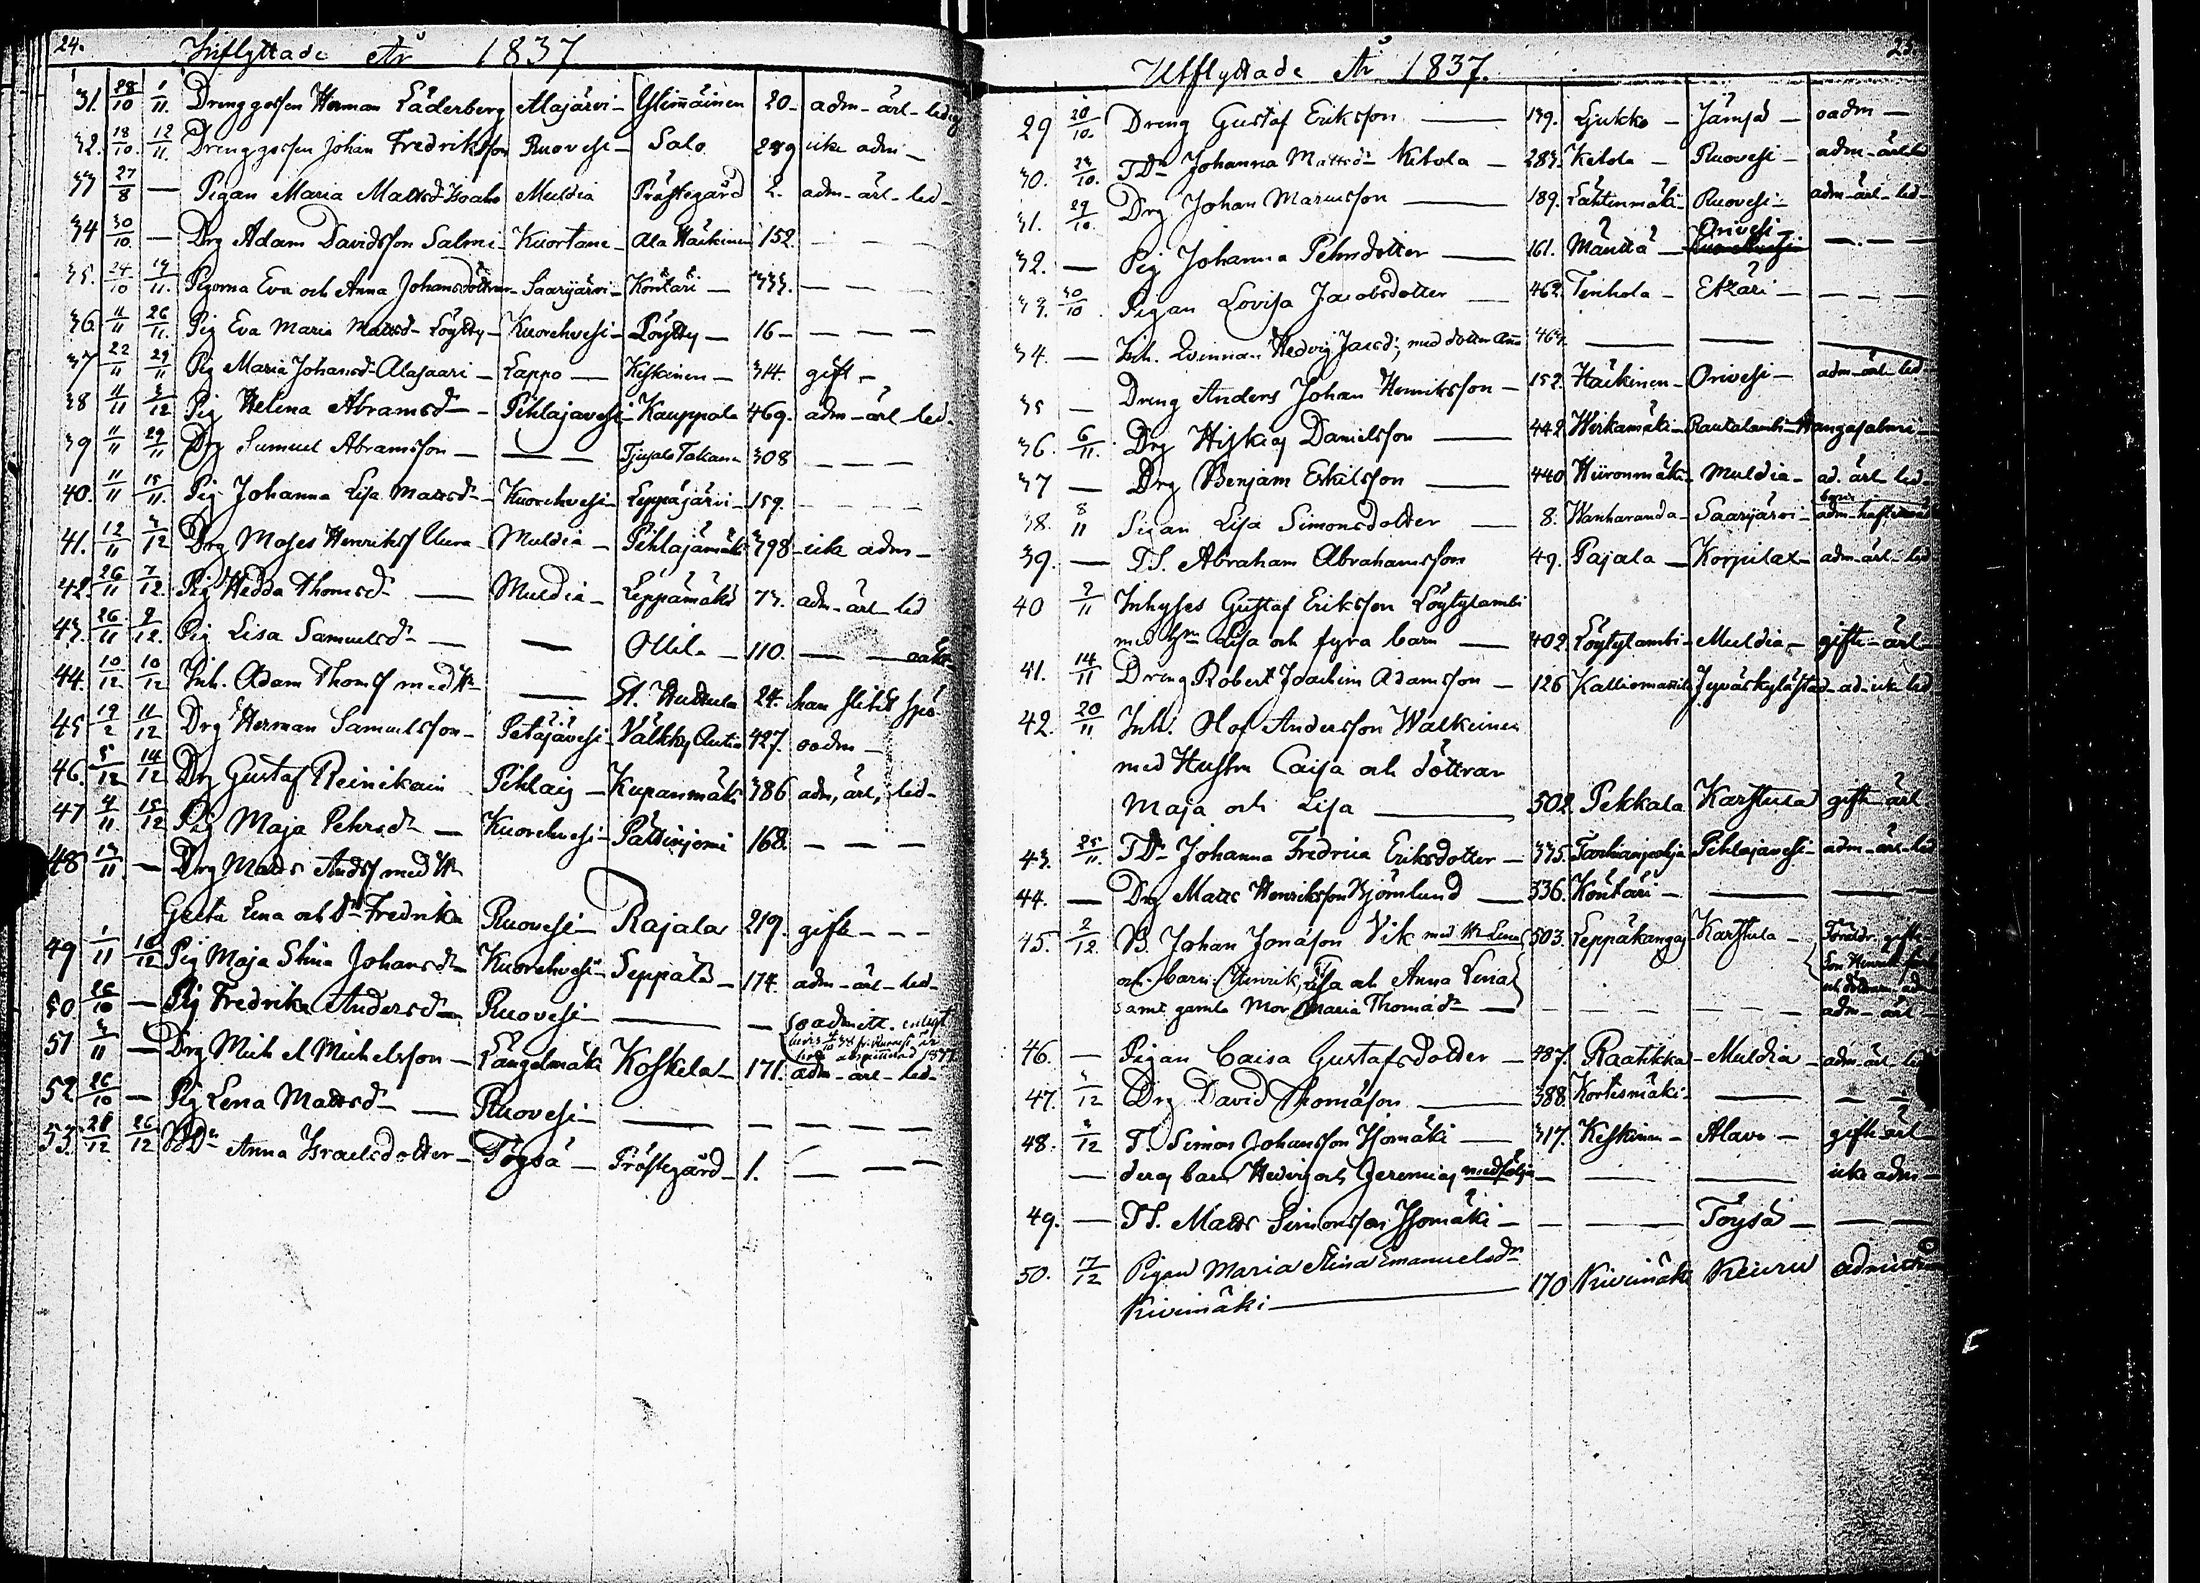 24. Inflyttade År 1837
31. 28/10 1/11. Drenggossen Herman Läderberg Alajärvi - Ylimäinen 20 - adm - ärl - ledig
32. 18/10. 12/11. Drenggossen Johan Fredriksson Ruovesi - Salo 289 icke adm -
33 27/8 — Pigan Maria Mattsd- Muldia Prästegård 2. adm - ärl - led -
34 30/10. — Drg Adam Davidsson Salmi - Kuortane - Ala Häkinen 152. - - -
35. 24/10 19/11. Pigorna Eva och Anna Johansdöttrar - Saarijärvi - Köntäri - 333. - - -
36 11/11 26/11. Pig Eva Maria Mattsd- Löytty - Kuorehvesi - Löytty - 16 - - - -
37 22/11 29/11 Pig Maria Johansd- Alasaari - Lappo — Keskinen - 314. gift -
38 11/11 3/12 Pig Helena Abramsd- - Pihlajavesi - Kauppala 469. adm - ärl - led.
39 11/11 29/11 Drg Samuel Abramsson - — — 308 - - -
40. 11/11 15/11. Pig Johanna Lisa Mattsd- - Kuorehvesi - Leppäjärvi - 159. - - -
41. 12/11 3/12 Drg Moses Henriksf - Muldia - Pihlajamäki 398 - icke adm -
42. 26/11 7/12. Pig Hedda Thomsd- — Muldia - Leppämäki 73. adm - ärl - led
43. 26/11 9/12. Pig Lisa Samuelsd- — — Ollila - 110. — —
44. 10/12 10/12 Inh. Adam Thomsf med H- — St. Huttula 24.
45 19/2 11/12 Drg Herman Samuelsson - Petäjävesi - Välkky 427. oadm -
46. 5/12 14/12 Drg Gustaf Reinikain Pihlaig - Kupanmäki 386 adm, ärl, led -
47 4/11. 15/12 Pig Maja Pehrsd- — Kuorehvesi - 168. - - -
48 13/11. — Drg Matts Andsf med H-
Greta Lena och Dr Fredrika Ruovesi - Rajala 219. gift - - -
49 1/11 16/12 Pig Maja Stina Johansd- Kuorehvesi - Seppälä - 174. adm - ärl - led -
50 26/10 — Pig Fredrika Andersd- Ruovesi - — - oadmitt. enligt
51 3/11 — Drg Michel Michelsson - Längelmäki Koskela - 171. adm - ärl - led -
52 26/10 — Pig Lena Mattsd- — Ruovesi - — - - - -
53. 28/12 26/12 BDr Anna Israelsdotter - Töysä - Prästegård - 1. - - -
Utflyttade År 1837.
29 20/10. Dreng Gustaf Eriksson — 139. Ljukko - Jämsä - oadm -
30. 23/10. TDr Johanna Mattsd- Ketola - 283. Ketola - Ruovesi - adm - ärl
31. 29/10 Drg Johan Marcusson — 189. Lahtinmäki - Ruovesi - adm - ärl - led -
32. — Pig Johanna Pehrsdotter — 161. Mänttä - Orivesi - - - -
33. 30/10 Pigan Lovisa Jacobsdotter — 462. Teirhola - Etzäri - - - -
34. — Inh. Qvinnan Hedvig Jacsd: med dotter 463. — — —
35 — Dreng Anders Johan Henriksson - 152. Häkinen - Orivesi - adm - ärl - led
36. 6/11. Drg Hiskias Danielsson — 442. Wirkamäki - Rautalambi - Hangasalmi -
37 — Drg Benjam Eskilsson — 440 Hiironmäki - Muldia - ad. ärl led -
38. 8/11 Pigan Lisa Simonsdotter — 8. Wanharanda - Saarijärvi -
39. — TS. Abraham Abrahamsson 49. Pajala - Korpilax - adm - ärl - led
40 9/11 Inhyses Gustaf Eriksson Löytylambi
med Hm Lisa och fyra barn — 402. Löytylambi - Muldia - gift - ärl -
41. 14/11 Dreng Robert Joachim Adamsson - 126 Jyväskylä stad -
42. 20/11 Inh. Olof Andersson Walkeinen
med Hustru Caisa och döttrar
Maja och Lisa — 502. Pekkala Karstula gift ärl
43. 25/11. TDr Johanna Fredrica Eriksdotter - 375. Pihlajavesi - adm - ärl - led
44. — Drg Matts Henriksson Björnlund — 336. Köntäri - — —
45. 2/12. B. Johan Jonäson Vik med H- Lena 503. Leppäkangas - Karstula -
och barn: Henrik, Lisa och Anna Lena
samt gamla Mor Maria Thomäd- — - - - - adm - ärl -
46. — Pigan Caisa Gustafsdotter - 487. Raatikka - Muldia - adm - ärl - led
47. 3/12 Drg David Thomäson — 388. Kortesmäki - — - -
48. 3/12 T. Simon Johansson Isomäki — 317. Keskinen - Alavo - gift - ärl -
— deras barn Hedvig och Jeremias medfölja - — — icke adm -
49. — TS. Matts Simonsson Isomäki - - — Töysä - — -
50. 17/12 Pigan Maria Stina Emanuelsdr
Kivimäki — 170 Kivimäki Keuru